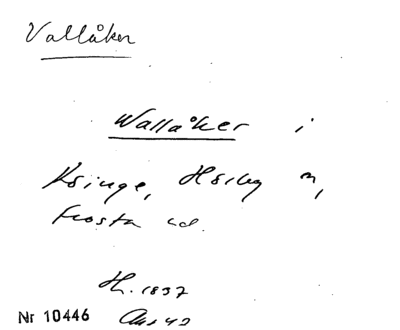 Vallåker
Wallåker i
Ksinge, Hörby
Frosta hd.
H. 1837
Nr 10446